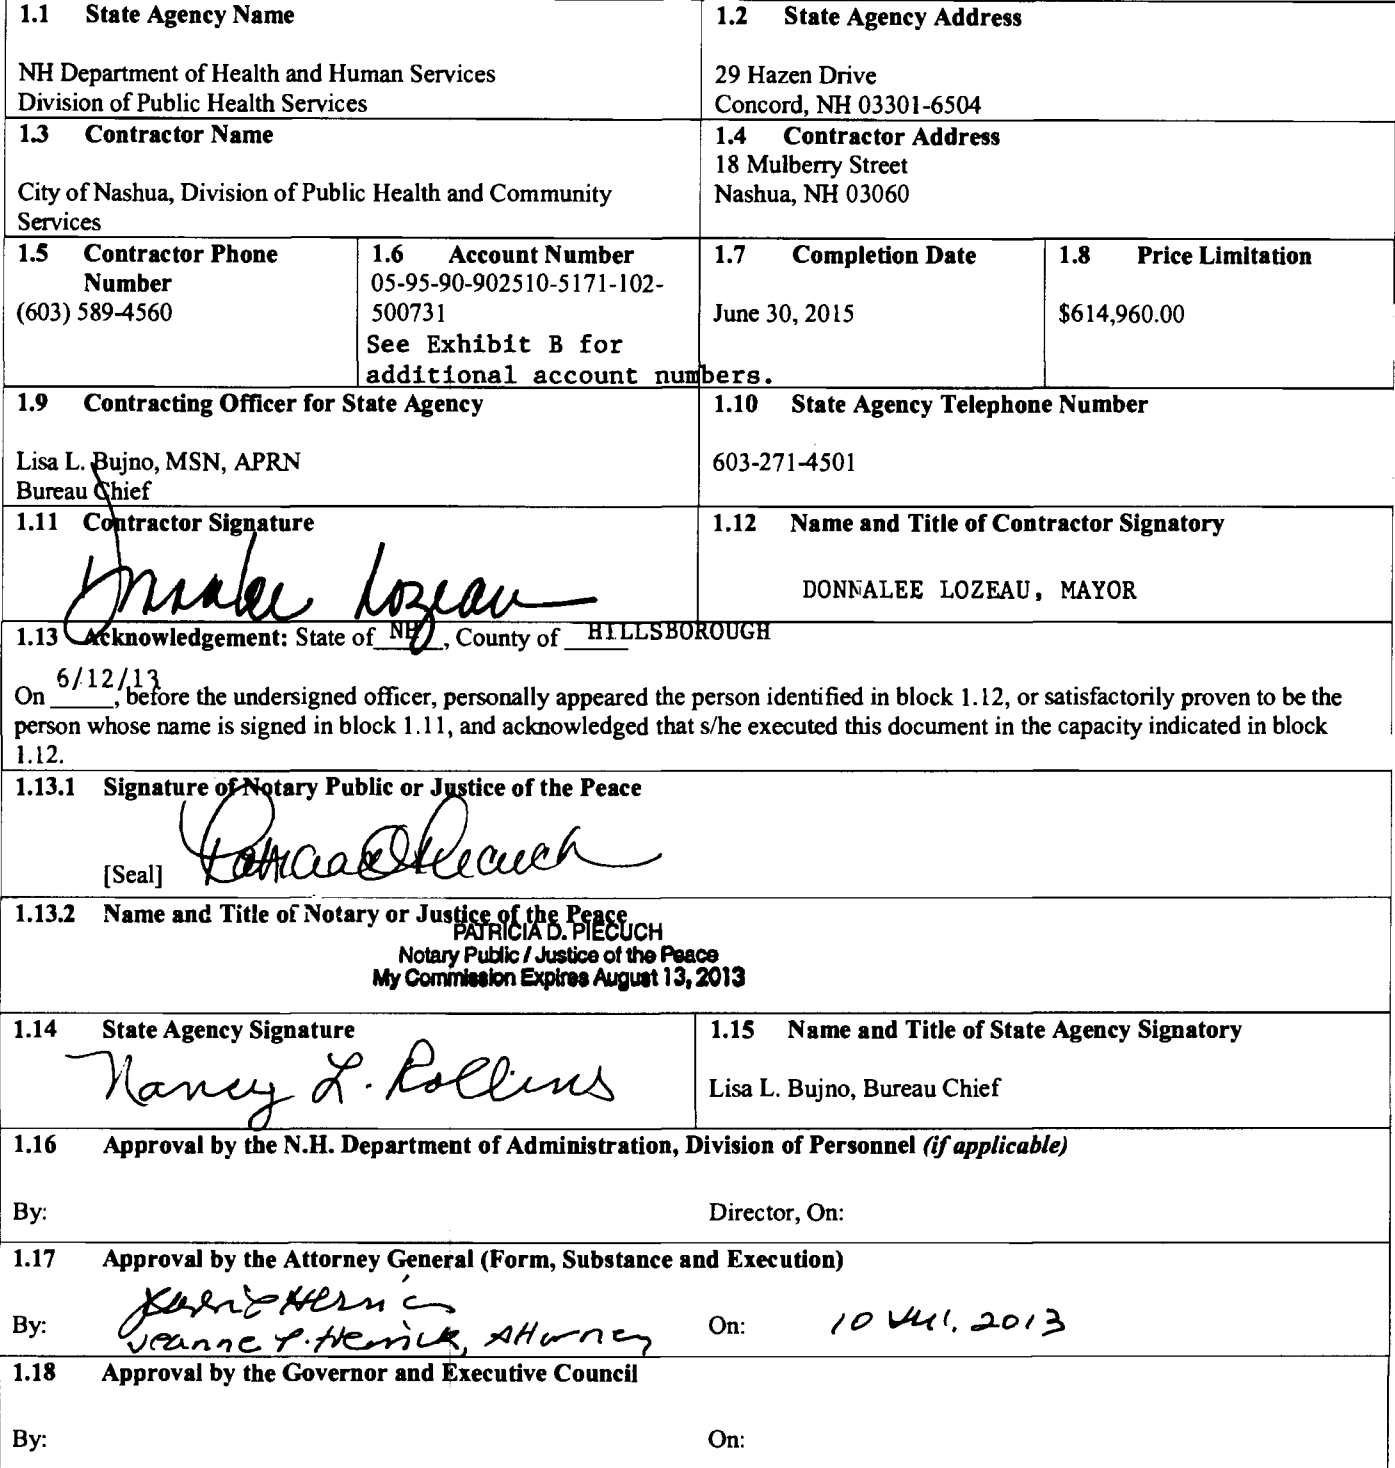 1.1 State Agency Name
1.2 State Agency Address
NH Department of Health and Human Services
Division of Public Health Services
29 Hazen Drive
Concord, NH 03301-6504
1.3 Contractor Name
1.4 Contractor Address
18 Mulberry Street
Nashua, NH 03060
City of Nashua, Division of Public Health and Community
Services
1.5 Contractor Phone
Number
(603) 589-4560
1.6 Account Number
05-95-90-902510-5171-102-
500731
See Exhibit B for
additional account numbers.
1.7 Completion Date
June 30, 2015
1.8 Price Limitation
$614,960.00
1.9 Contracting Officer for State Agency
Lisa L. Bujno, MSN, APRN
Bureau Chief
1.10 State Agency Telephone Number
603-271-4501
1.11 Contractor Signature
Donnalee Lozeau
1.12 Name and Title of Contractor Signatory
DONNALEE LOZEAU, MAYOR
1.13 Acknowledgement: State of NH, County of HILLSBOROUGH
On 6/12/13, before the undersigned officer, personally appeared the person identified in block 1.12, or satisfactorily proven to be the
person whose name is signed in block 1.11, and acknowledged that s/he executed this document in the capacity indicated in block
1.12.
1.13.1 Signature of Notary Public or Justice of the Peace
Patricia D. Piecuch
[Seal]
1.13.2 Name and Title of Notary or Justice of the Peace
PATRICIA D. PIECUCH
Notary Public / Justice of the Peace
My Commission Expires August 13, 2013
1.14 State Agency Signature
Nancy L. Rollins
1.15 Name and Title of State Agency Signatory
Lisa L. Bujno, Bureau Chief
1.16 Approval by the N.H. Department of Administration, Division of Personnel (if applicable)
By:
Director, On:
1.17 Approval by the Attorney General (Form, Substance and Execution)
By: Jeanne P. Herrick, Attorney
On: 10 Jul. 2013
1.18 Approval by the Governor and Executive Council
By:
On: